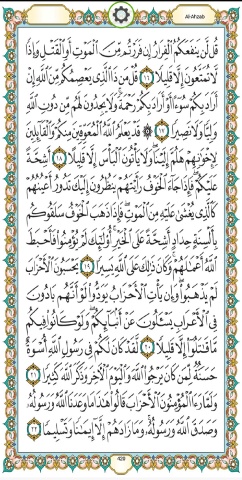 Al-Ahzab
قُل لَّن يَنفَعَكُمُ ٱلْفِرَارُ إِن فَرَرْتُم مِّنَ ٱلْمَوْتِ أَوِ ٱلْقَتْلِ وَإِذًا
لَّا تُمَتَّعُونَ إِلَّا قَلِيلًا ١٦ قُلْ مَن ذَا ٱلَّذِى يَعْصِمُكُم مِّنَ ٱللَّهِ إِنْ
أَرَادَ بِكُمْ سُوٓءًا أَوْ أَرَادَ بِكُمْ رَحْمَةً وَلَا يَجِدُونَ لَهُم مِّن دُونِ ٱللَّهِ
وَلِيًّا وَلَا نَصِيرًا ١٧ ۞ قَدْ يَعْلَمُ ٱللَّهُ ٱلْمُعَوِّقِينَ مِنكُمْ وَٱلْقَآئِلِينَ
لِإِخْوَٰنِهِمْ هَلُمَّ إِلَيْنَا وَلَا يَأْتُونَ ٱلْبَأْسَ إِلَّا قَلِيلًا ١٨ أَشِحَّةً
عَلَيْكُمْ فَإِذَا جَآءَ ٱلْخَوْفُ رَأَيْتَهُمْ يَنظُرُونَ إِلَيْكَ تَدُورُ أَعْيُنُهُمْ
كَٱلَّذِى يُغْشَىٰ عَلَيْهِ مِنَ ٱلْمَوْتِ فَإِذَا ذَهَبَ ٱلْخَوْفُ سَلَقُوكُم
بِأَلْسِنَةٍ حِدَادٍ أَشِحَّةً عَلَى ٱلْخَيْرِ أُو۟لَٰٓئِكَ لَمْ يُؤْمِنُوا۟ فَأَحْبَطَ
ٱللَّهُ أَعْمَٰلَهُمْ وَكَانَ ذَٰلِكَ عَلَى ٱللَّهِ يَسِيرًا ١٩ يَحْسَبُونَ ٱلْأَحْزَابَ
لَمْ يَذْهَبُوا۟ وَإِن يَأْتِ ٱلْأَحْزَابُ يَوَدُّوا۟ لَوْ أَنَّهُم بَادُونَ
فِى ٱلْأَعْرَابِ يَسْـَٔلُونَ عَنْ أَنۢبَآئِكُمْ وَلَوْ كَانُوا۟ فِيكُم
مَّا قَٰتَلُوٓا۟ إِلَّا قَلِيلًا ٢٠ لَّقَدْ كَانَ لَكُمْ فِى رَسُولِ ٱللَّهِ أُسْوَةٌ
حَسَنَةٌ لِّمَن كَانَ يَرْجُوا۟ ٱللَّهَ وَٱلْيَوْمَ ٱلْءَاخِرَ وَذَكَرَ ٱللَّهَ كَثِيرًا ٢١
وَلَمَّا رَءَا ٱلْمُؤْمِنُونَ ٱلْأَحْزَابَ قَالُوا۟ هَٰذَا مَا وَعَدَنَا ٱللَّهُ وَرَسُولُهُۥ
وَصَدَقَ ٱللَّهُ وَرَسُولُهُۥ وَمَا زَادَهُمْ إِلَّآ إِيمَٰنًا وَتَسْلِيمًا ٢٢
420